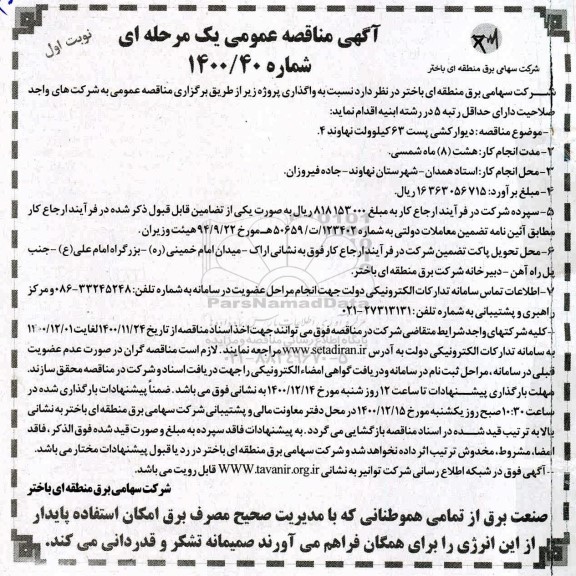 نوبت اول
آگهی مناقصه عمومی یک مرحله ای
شماره ۱۴۰۰/۴۰
شرکت سهامی برق منطقه ای باختر
شرکت سهامی برق منطقه ای باختر در نظر دارد نسبت به واگذاری پروژه زیر از طریق برگزاری مناقصه عمومی به شرکت های واجد
صلاحیت دارای حداقل رتبه ۵ در رشته ابنیه اقدام نماید:
۱-موضوع مناقصه: دیوارکشی پست ۶۳ کیلوولت نهاوند ۴.
۲-مدت انجام کار: هشت (۸) ماه شمسی.
۳-محل انجام کار: استاد همدان - شهرستان نهاوند-جاده فیروزان.
۴-مبلغ برآورد: ۱۶۳۶۳۰۵۶۷۱۵ ریال.
۵-سپرده شرکت در فرآیند ارجاع کار به مبلغ ۸۱۸۱۵۳۰۰۰ ریال به صورت یکی از تضامین قابل قبول ذکر شده در فرآیند ارجاع کار
مطابق آئین نامه تضمین معاملات دولتی به شماره ۱۲۳۴۰۲/ت/۵۰۶۵۹هـ مورخ ۹۴/۹/۲۲ هیئت وزیران.
۶-محل تحویل پاکت تضمین شرکت در فرآیند ارجاع کار فوق به نشانی اراک -میدان امام خمینی (ره) -بزرگراه امام علی(ع) -جنب
پل راه آهن - دبیرخانه شرکت برق منطقه ای باختر.
۷-اطلاعات تماس سامانه تدارکات الکترونیکی دولت جهت انجام مراحل عضویت در سامانه به شماره تلفن: ۳۳۲۴۵۲۴۸-۰۸۶ و مرکز
راهبری و پشتیبانی به شماره تلفن: ۲۷۳۱۳۱۳۱-۰۲۱
-کلیه شرکتهای واجد شرایط متقاضی شرکت در مناقصه فوق می توانند جهت اخذ اسناد مناقصه از تاریخ ۱۴۰۰/۱۱/۲۴ لغایت ۱۴۰۰/۱۲/۰۱
به سامانه تدارکات الکترونیکی دولت به آدرس www.setadiran.ir مراجعه نمایند. لازم است مناقصه گران در صورت عدم عضویت
قبلی در سامانه، مراحل ثبت نام در سامانه و دریافت گواهی امضاء الکترونیکی را جهت دریافت اسناد و شرکت در مناقصه محقق سازند.
مهلت بارگذاری پیشنهادات تا ساعت ۱۲ روز شنبه مورخ ۱۴۰۰/۱۲/۱۴ به نشانی فوق می باشد. ضمناً پیشنهادات بارگذاری شده در
ساعت ۱۰:۳۰ صبح روز یکشنبه مورخ ۱۴۰۰/۱۲/۱۵ در محل دفتر معاونت مالی و پشتیبانی شرکت سهامی برق منطقه ای باختر به نشانی
بالا به ترتیب قید شده در اسناد مناقصه بازگشایی می گردد. به پیشنهادات فاقد سپرده به مبلغ و صورت قید شده فوق الذکر، فاقد
امضا، مشروط، مخدوش ترتیب اثر داده نخواهد شد و شرکت سهامی برق منطقه ای باختر در رد یا قبول پیشنهادات مختار می باشد.
-آگهی فوق در شبکه اطلاع رسانی شرکت توانیر به نشانی WWW.tavanir.org.ir قابل رویت می باشد.
شرکت سهامی برق منطقه ای باختر
صنعت برق از تمامی هموطنانی که با مدیریت صحیح مصرف برق امکان استفاده پایدار
از این انرژی را برای همگان فراهم می آورند صمیمانه تشکر و قدردانی می کند.
ParsNamadData